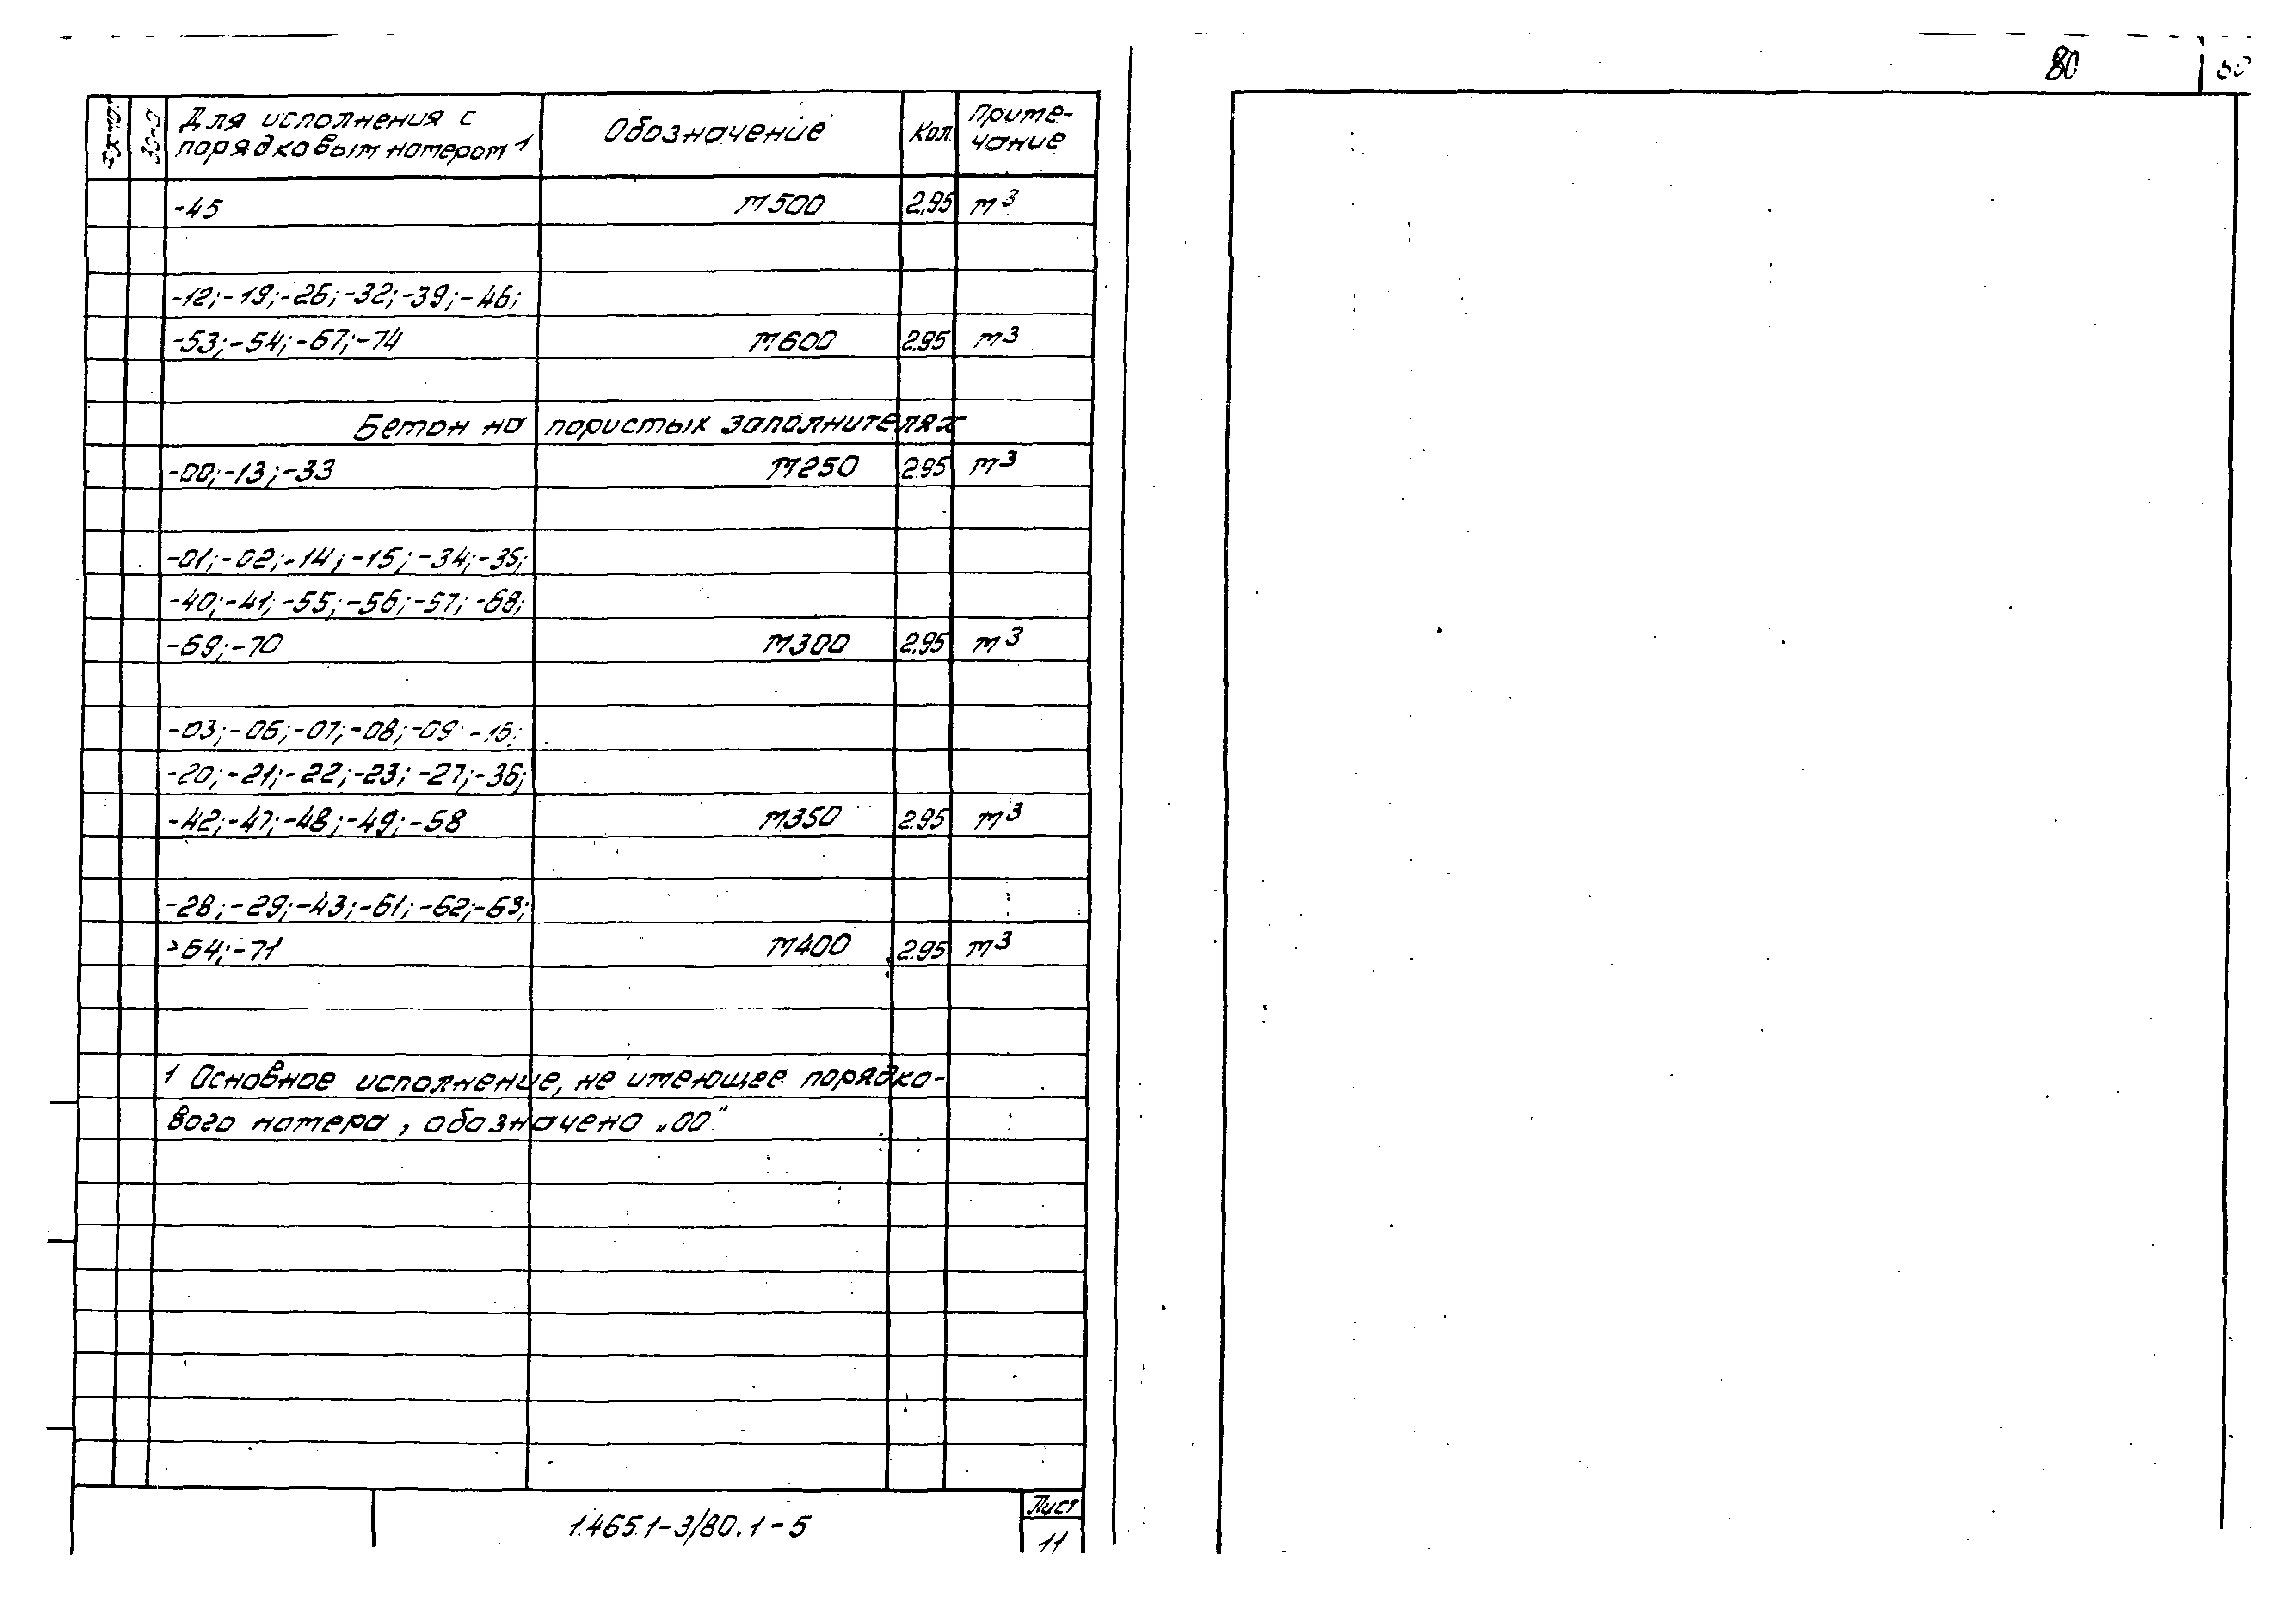 80
Для исполнения с порядковым номером 1 Обозначение Кол. Примечание
-45 М500 2,95 м³
-12;-19;-26;-32;-39;-46;
-53;-54;-67;-74 М600 2.95 м³
Бетон на пористых заполнителях
-00;-13;-33 М250 2.95 м³
-01;-02;-14;-15;-34;-35;
-40;-41;-55;-56;-57;-68;
-69;-70 М300 2.95 м³
-03;-06;-07;-08;-09 -16;
-20;-21;-22;-23;-27;-36;
-42;-47;-48;-49;-58 М350 2.95 м³
-28;-29;-43;-61;-62;-63;
-64;-71 М400 2.95 м³
1 Основное исполнение, не имеющее порядко-
вого номера, обозначено „00"
1.465.1-3/80.1-5
Лист
11